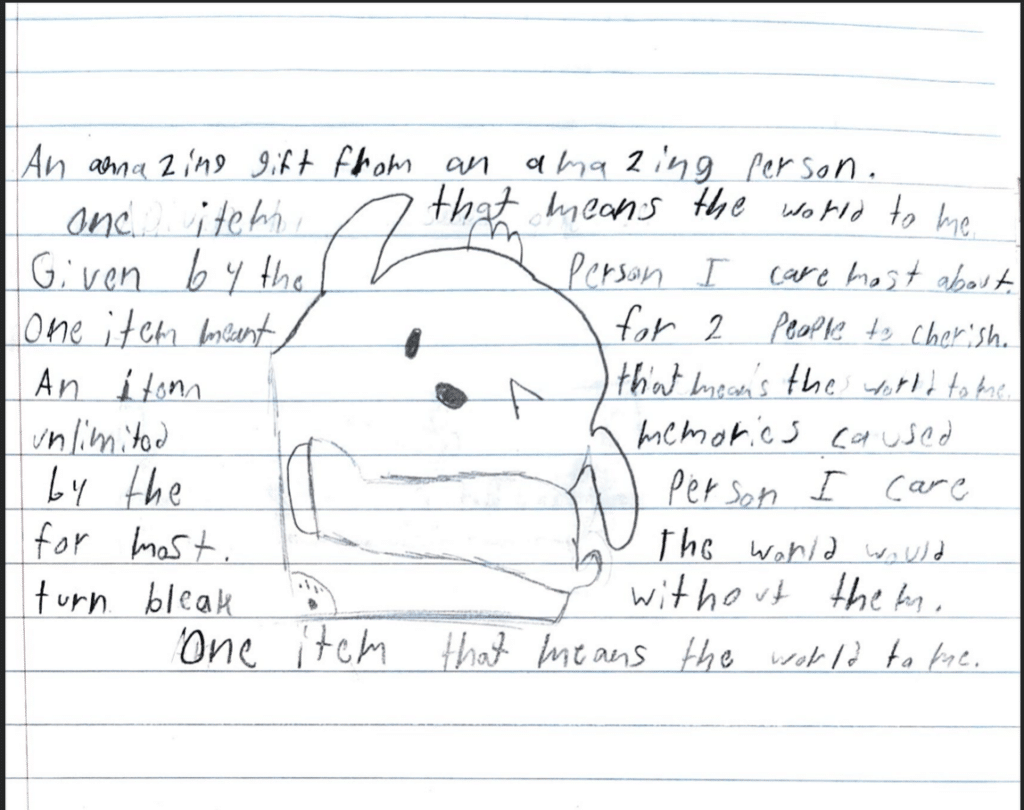 An amazing gift from an amazing person.
one item that means the world to me.
Given by the person I care most about.
One item meant for 2 people to cherish.
An item that means the world to me.
unlimited memories caused
by the person I care
for most. The world would
turn bleak without them.
One item that means the world to me.